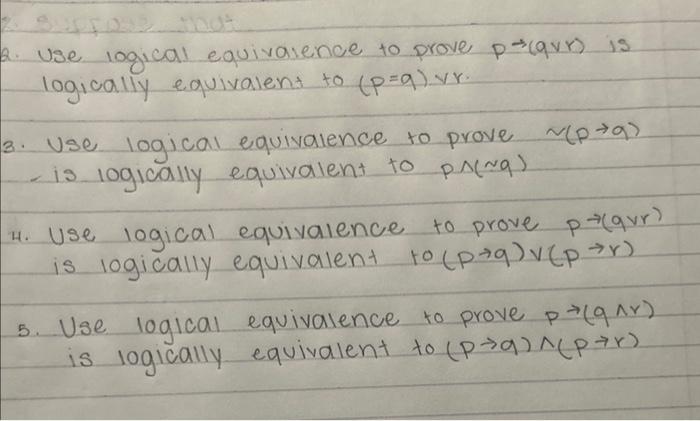 2. Suppose that
2. Use logical equivalence to prove p→(q∨r) is
logically equivalent to (p=q)∨r.
3. Use logical equivalence to prove ~(p→q)
- is logically equivalent to p∧(~q)
4. Use logical equivalence to prove p→(q∨r)
is logically equivalent to (p→q)∨(p→r)
5. Use logical equivalence to prove p→(q∧r)
is logically equivalent to (p→q)∧(p→r)